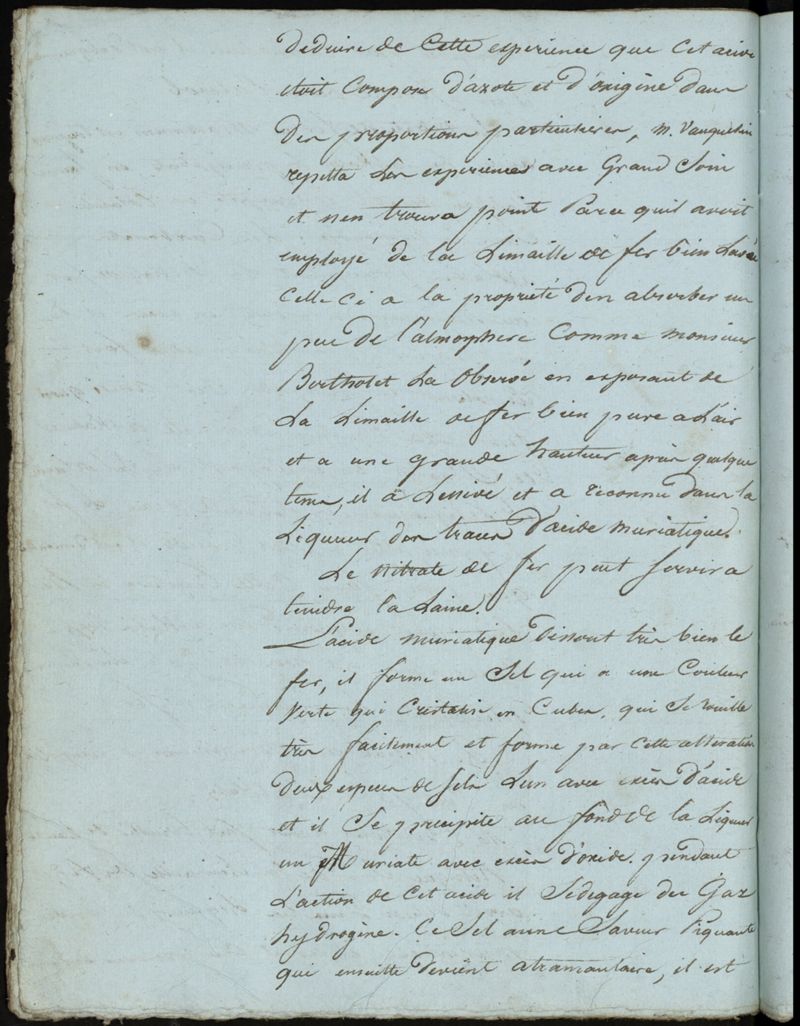 deduire de Cette experience que Cet acide
etoit Composé d'azote et d'origène dans
des proportions particulieres, m. Vauquelin
repetta Les experiences avec Grand Soin
et n'en trouva point Parce qu'il avoit
employé de la Limaille de fer bien Lavée
Celle Ci a la propriété d'en absorber un
peu de l'atmosphere Comme monsieur
Bertholet La Observé en exposant de
La Limaille de fer bien pure a L'air
et a une grande hauteur après quelque
tems, il a Lessivé et a reconnu dans la
Liqueur des traces d'acide muriatique.
Le nitrate de fer peut Servir a
teindre la Laine.
L'acide muriatique dissout très bien le
fer, il forme un Sel qui a une Couleur
Verte qui Cristalise en Cubes, qui Se rouille
très facilement et forme par Cette alteration
deux especes de Sels L'un avec excès d'acide
et il Se precipite au fond de la Liqueur
un Muriate avec excès d'oxide. pendant
L'action de Cet acide il Se degage du Gaz
hydrogène. Ce Sel a une Saveur Piquante
qui ensuitte devient atramantaire, il est